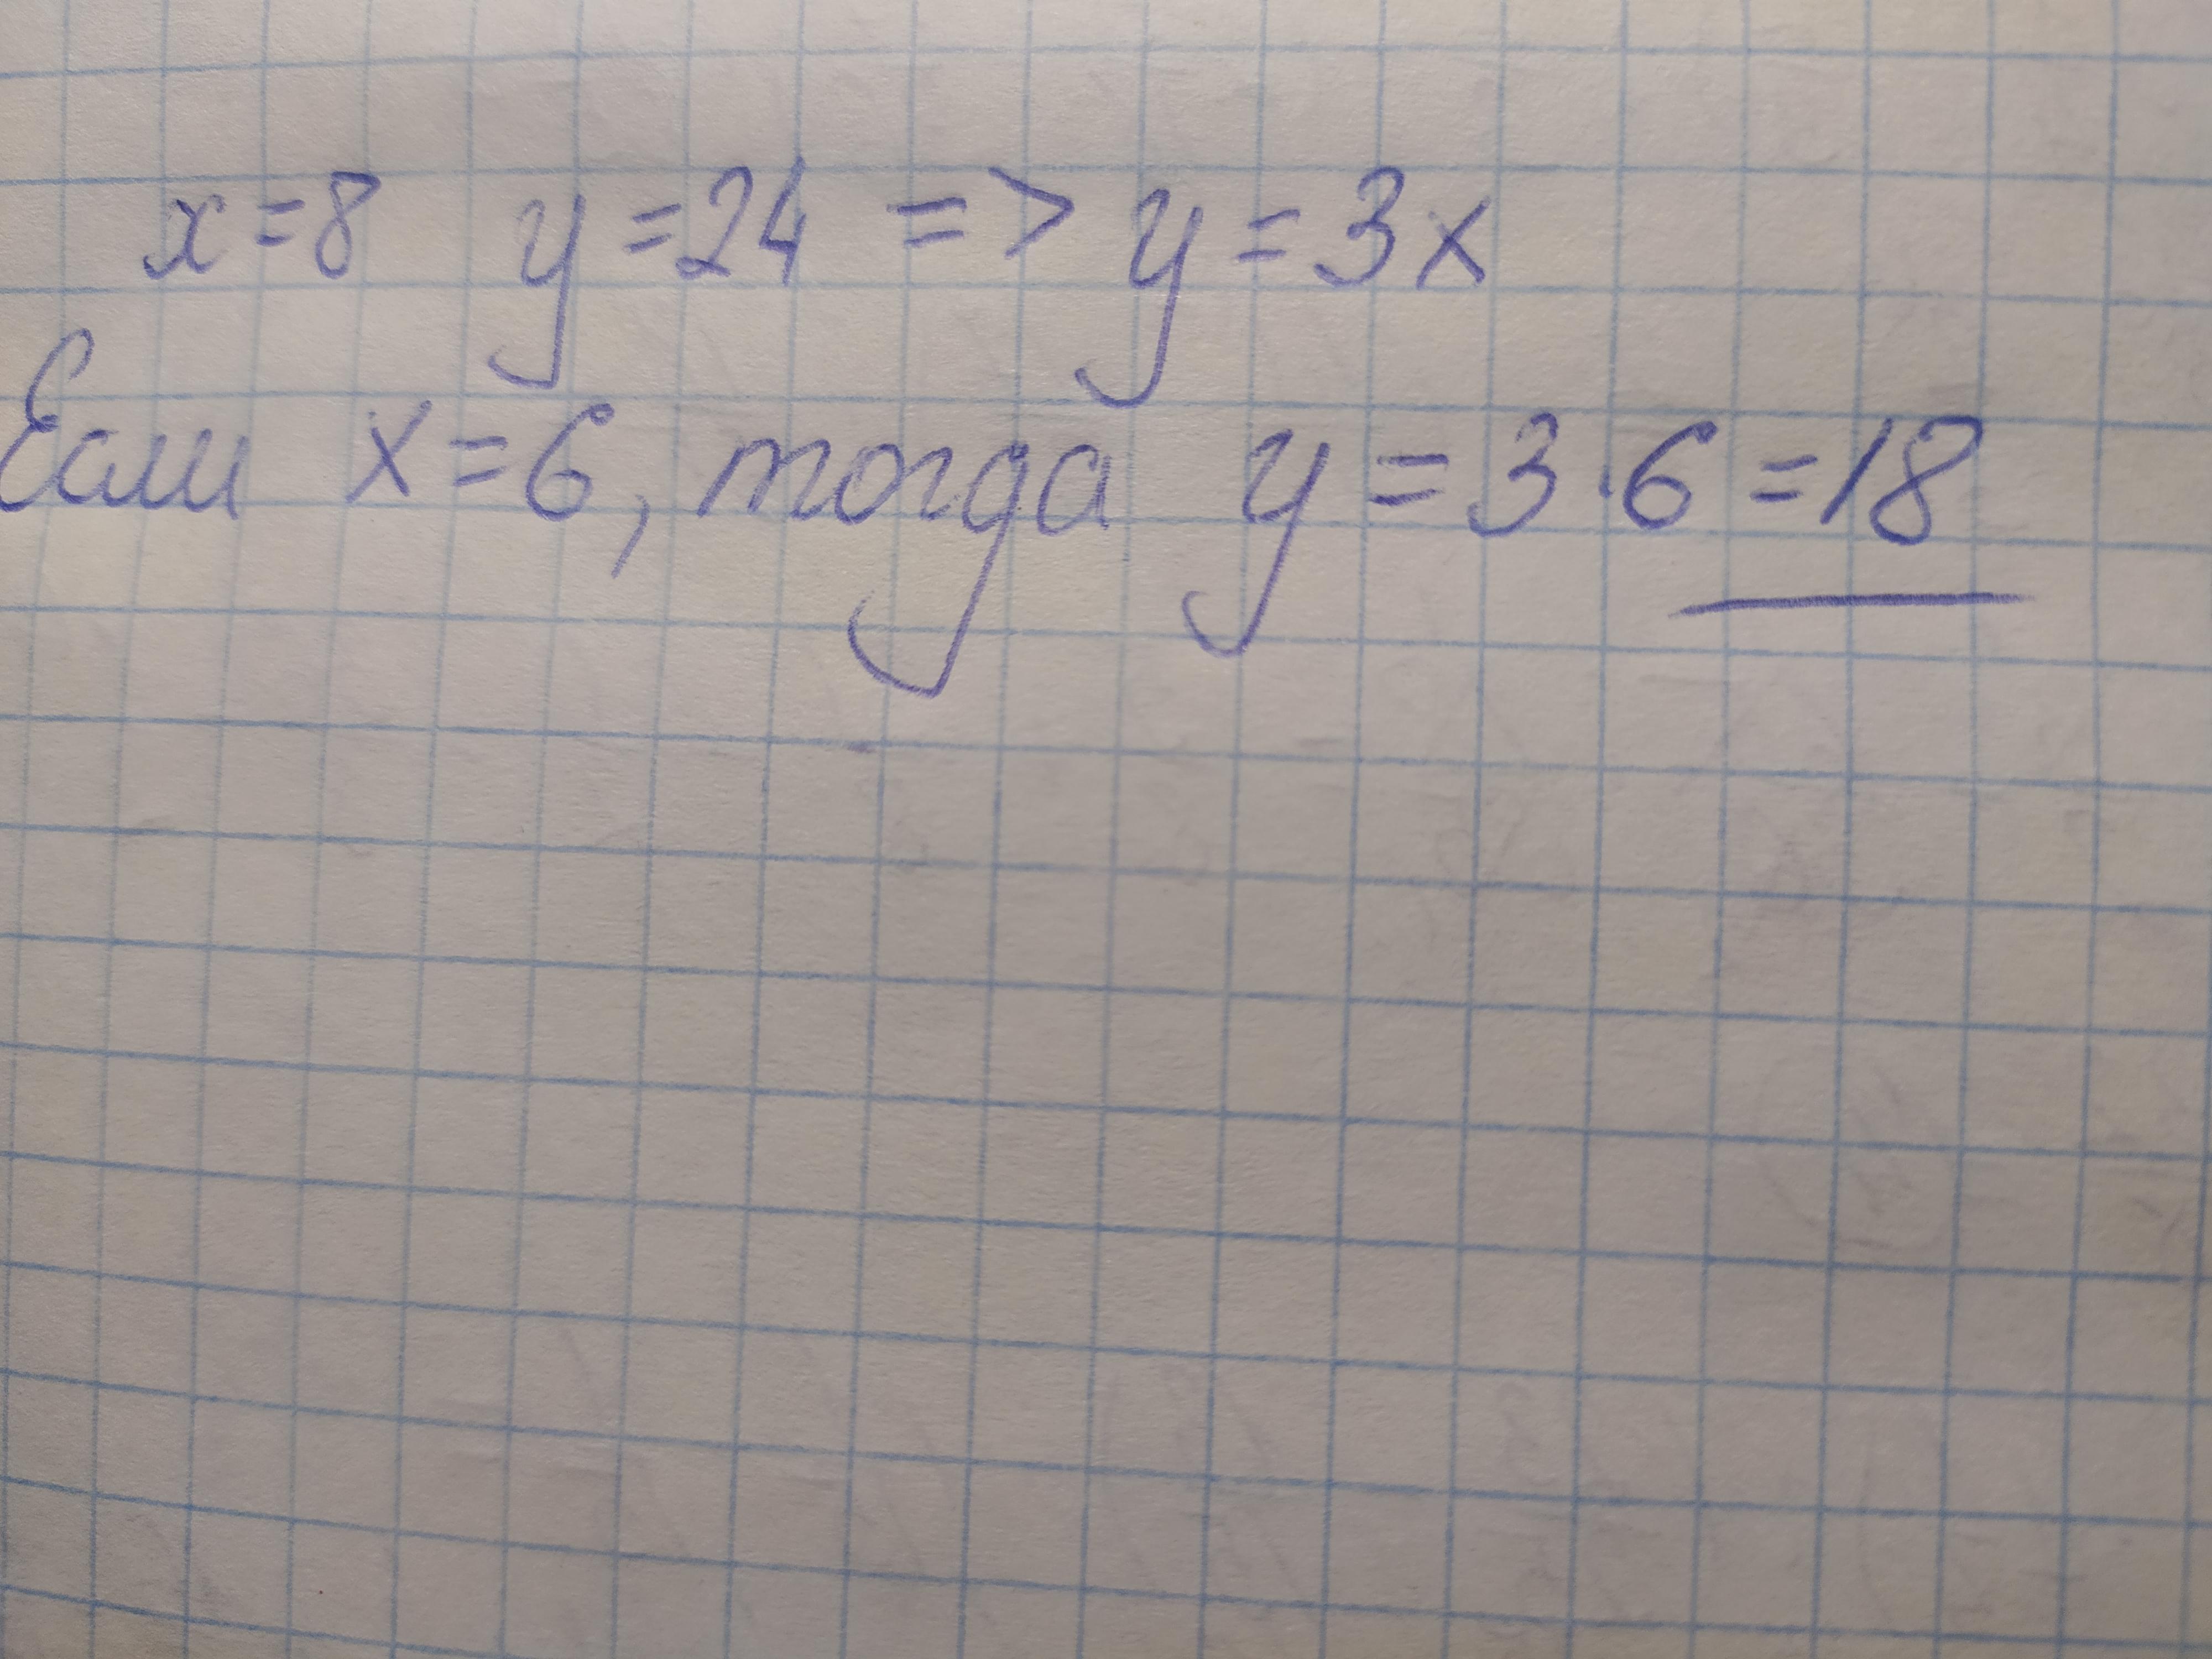 x=8 y=24 => y=3x
Если x=6, тогда y=3·6=18